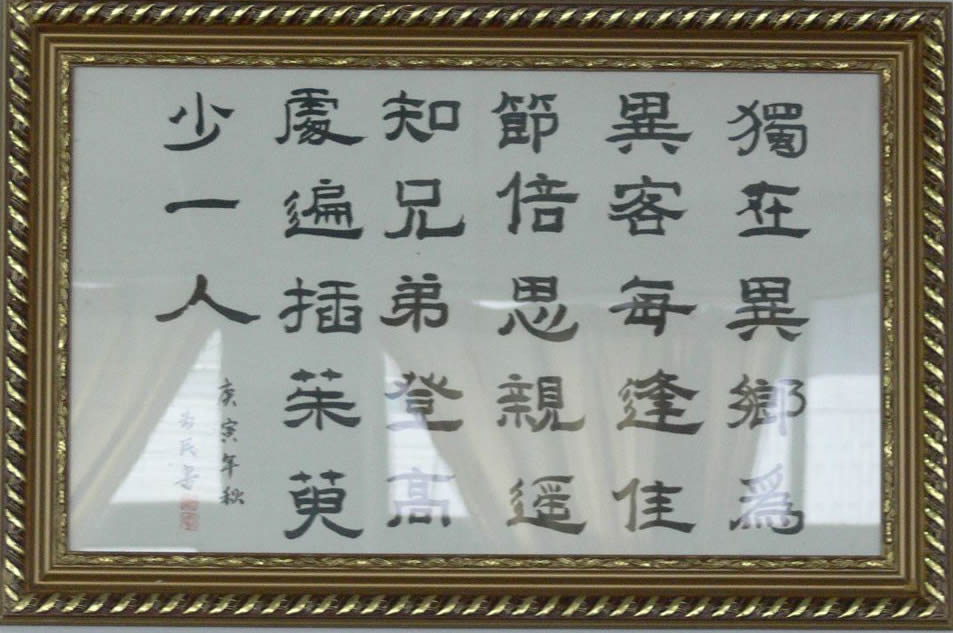 獨在異鄉爲
異客每逢佳
節倍思親遥
知兄弟登高
處遍插茱萸
少一人
庚寅年秋
民書